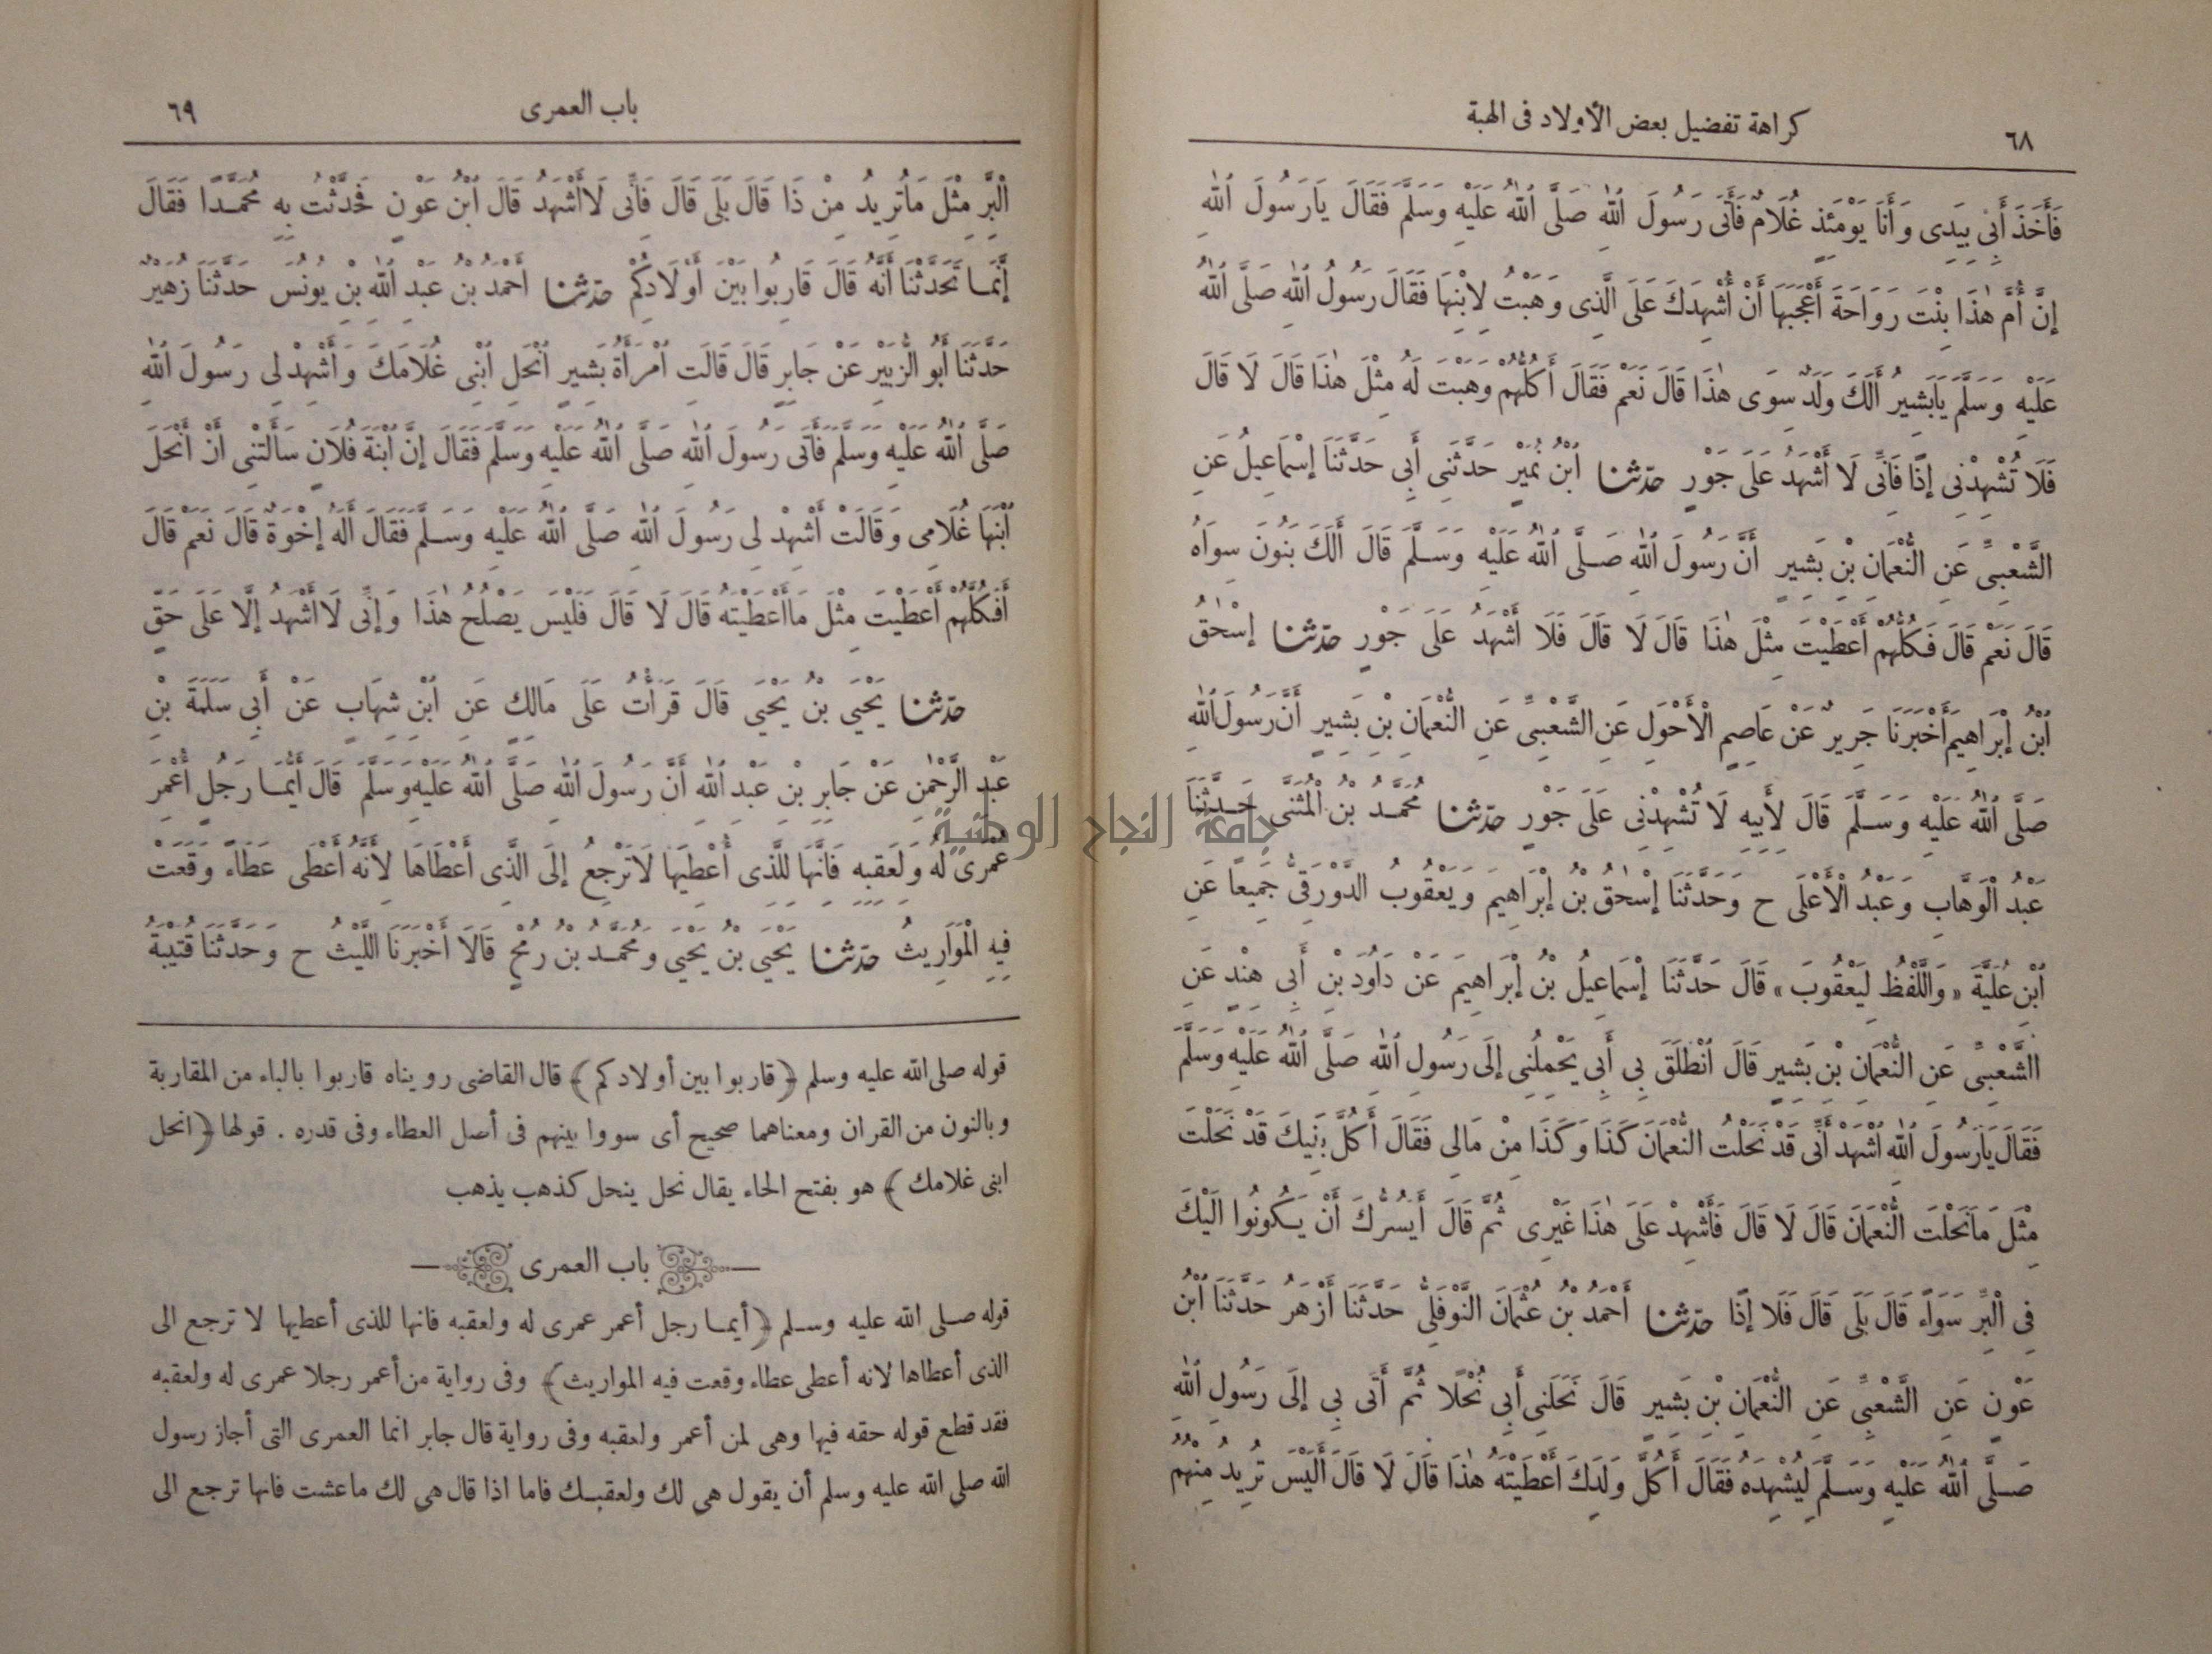 ٦٨
كراهة تفضيل بعض الأولاد فى الهبة
فَأَخَذَ أَبِى بِيَدِى وَأَنَا يَوْمَئِذٍ غُلَامٌ فَأَتَى رَسُولَ اللهِ صَلَّى اللهُ عَلَيْهِ وَسَلَّمَ فَقَالَ يَارَسُولَ اللهِ
إِنَّ أُمَّ هٰذَا بِنْتَ رَوَاحَةَ أَعْجَبَهَا أَنْ أُشْهِدَكَ عَلَى الَّذِى وَهَبْتُ لِابْنِهَا فَقَالَ رَسُولُ اللهِ صَلَّى اللهُ
عَلَيْهِ وَسَلَّمَ يَابَشِيرُ أَلَكَ وَلَدٌ سِوَى هٰذَا قَالَ نَعَمْ فَقَالَ أَكُلَّهُمْ وَهَبْتَ لَهُ مِثْلَ هٰذَا قَالَ لَا قَالَ
فَلَا تُشْهِدْنِى إِذًا فَإِنِّى لَا أَشْهَدُ عَلَى جَوْرٍ حدثنا ابْنُ نُمَيْرٍ حَدَّثَنِى أَبِى حَدَّثَنَا إِسْمَاعِيلُ عَنِ
الشَّعْبِىِّ عَنِ النُّعْمَانِ بْنِ بَشِيرٍ أَنَّ رَسُولَ اللهِ صَلَّى اللهُ عَلَيْهِ وَسَلَّمَ قَالَ أَلَكَ بَنُونَ سِوَاهُ
قَالَ نَعَمْ قَالَ فَكُلُّهُمْ أَعْطَيْتَ مِثْلَ هٰذَا قَالَ لَا قَالَ فَلَا أَشْهَدُ عَلَى جَوْرٍ حدثنا إِسْحٰقُ
ابْنُ إِبْرَاهِيمَ أَخْبَرَنَا جَرِيرٌ عَنْ عَاصِمٍ الْأَحْوَلِ عَنِ الشَّعْبِىِّ عَنِ النُّعْمَانِ بْنِ بَشِيرٍ أَنَّ رَسُولَ اللهِ
صَلَّى اللهُ عَلَيْهِ وَسَلَّمَ قَالَ لِأَبِيهِ لَا تُشْهِدْنِى عَلَى جَوْرٍ حدثنا مُحَمَّدُ بْنُ الْمُثَنَّى حَدَّثَنَا
عَبْدُ الْوَهَّابِ وَعَبْدُ الْأَعْلَى ح وَحَدَّثَنَا إِسْحٰقُ بْنُ إِبْرَاهِيمَ وَيَعْقُوبُ الدَّوْرَقِىُّ جَمِيعًا عَنِ
ابْنِ عُلَيَّةَ «وَاللَّفْظُ لِيَعْقُوبَ» قَالَ حَدَّثَنَا إِسْمَاعِيلُ بْنُ إِبْرَاهِيمَ عَنْ دَاوُدَ بْنِ أَبِى هِنْدٍ عَنِ
الشَّعْبِىِّ عَنِ النُّعْمَانِ بْنِ بَشِيرٍ قَالَ انْطَلَقَ بِى أَبِى يَحْمِلُنِى إِلَى رَسُولِ اللهِ صَلَّى اللهُ عَلَيْهِ وَسَلَّمَ
فَقَالَ يَارَسُولَ اللهِ اشْهَدْ أَنِّى قَدْ نَحَلْتُ النُّعْمَانَ كَذَا وَكَذَا مِنْ مَالِى فَقَالَ أَكُلَّ بَنِيكَ قَدْ نَحَلْتَ
مِثْلَ مَا نَحَلْتَ النُّعْمَانَ قَالَ لَا قَالَ فَأَشْهِدْ عَلَى هٰذَا غَيْرِى ثُمَّ قَالَ أَيَسُرُّكَ أَنْ يَكُونُوا إِلَيْكَ
فِى الْبِرِّ سَوَاءً قَالَ بَلَى قَالَ فَلَا إِذًا حدثنا أَحْمَدُ بْنُ عُثْمَانَ النَّوْفَلِىُّ حَدَّثَنَا أَزْهَرُ حَدَّثَنَا ابْنُ
عَوْنٍ عَنِ الشَّعْبِىِّ عَنِ النُّعْمَانِ بْنِ بَشِيرٍ قَالَ نَحَلَنِى أَبِى نُحْلًا ثُمَّ أَتَى بِى إِلَى رَسُولِ اللهِ
صَلَّى اللهُ عَلَيْهِ وَسَلَّمَ لِيُشْهِدَهُ فَقَالَ أَكُلَّ وَلَدِكَ أَعْطَيْتَهُ هٰذَا قَالَ لَا قَالَ أَلَيْسَ تُرِيدُ مِنْهُمُ
باب العمرى
٦٩
الْبِرَّ مِثْلَ مَاتُرِيدُ مِنْ ذَا قَالَ بَلَى قَالَ فَإِنِّى لَا أَشْهَدُ قَالَ ابْنُ عَوْنٍ فَحَدَّثْتُ بِهِ مُحَمَّدًا فَقَالَ
إِنَّمَا تَحَدَّثْنَا أَنَّهُ قَالَ قَارِبُوا بَيْنَ أَوْلَادِكُمْ حدثنا أَحْمَدُ بْنُ عَبْدِ اللهِ بْنِ يُونُسَ حَدَّثَنَا زُهَيْرٌ
حَدَّثَنَا أَبُو الزُّبَيْرِ عَنْ جَابِرٍ قَالَ قَالَتِ امْرَأَةُ بَشِيرٍ انْحَلِ ابْنِى غُلَامَكَ وَأَشْهِدْ لِى رَسُولَ اللهِ
صَلَّى اللهُ عَلَيْهِ وَسَلَّمَ فَأَتَى رَسُولَ اللهِ صَلَّى اللهُ عَلَيْهِ وَسَلَّمَ فَقَالَ إِنَّ ابْنَةَ فُلَانٍ سَأَلَتْنِى أَنْ أَنْحَلَ
ابْنَهَا غُلَامِى وَقَالَتْ أَشْهِدْ لِى رَسُولَ اللهِ صَلَّى اللهُ عَلَيْهِ وَسَلَّمَ فَقَالَ أَلَهُ إِخْوَةٌ قَالَ نَعَمْ قَالَ
أَفَكُلَّهُمْ أَعْطَيْتَ مِثْلَ مَا أَعْطَيْتَهُ قَالَ لَا قَالَ فَلَيْسَ يَصْلُحُ هٰذَا وَإِنِّى لَا أَشْهَدُ إِلَّا عَلَى حَقٍّ
حدثنا يَحْيَى بْنُ يَحْيَى قَالَ قَرَأْتُ عَلَى مَالِكٍ عَنِ ابْنِ شِهَابٍ عَنْ أَبِى سَلَمَةَ بْنِ
عَبْدِ الرَّحْمٰنِ عَنْ جَابِرِ بْنِ عَبْدِ اللهِ أَنَّ رَسُولَ اللهِ صَلَّى اللهُ عَلَيْهِ وَسَلَّمَ قَالَ أَيُّمَا رَجُلٍ أُعْمِرَ
عُمْرَى لَهُ وَلِعَقِبِهِ فَإِنَّهَا لِلَّذِى أُعْطِيَهَا لَا تَرْجِعُ إِلَى الَّذِى أَعْطَاهَا لِأَنَّهُ أَعْطَى عَطَاءً وَقَعَتْ
فِيهِ الْمَوَارِيثُ حدثنا يَحْيَى بْنُ يَحْيَى وَمُحَمَّدُ بْنُ رُمْحٍ قَالَا أَخْبَرَنَا اللَّيْثُ ح وَحَدَّثَنَا قُتَيْبَةُ
قوله صلى الله عليه وسلم ﴿قاربوا بين أولادكم﴾ قال القاضى رويناه قاربوا بالباء من المقاربة
وبالنون من القران ومعناهما صحيح أى سووا بينهم فى أصل العطاء وفى قدره . قولها ﴿انحل
ابنى غلامك﴾ هو بفتح الحاء يقال نحل ينحل كذهب يذهب
باب العمرى
قوله صلى الله عليه وسلم ﴿أيما رجل أعمر عمرى له ولعقبه فانها للذى أعطيها لا ترجع الى
الذى أعطاها لانه أعطى عطاء وقعت فيه المواريث﴾ وفى رواية من أعمر رجلا عمرى له ولعقبه
فقد قطع قوله حقه فيها وهى لمن أعمر ولعقبه وفى رواية قال جابر انما العمرى التى أجاز رسول
الله صلى الله عليه وسلم أن يقول هى لك ولعقبك فاما اذا قال هى لك ماعشت فانها ترجع الى
جامعة النجاح الوطنية